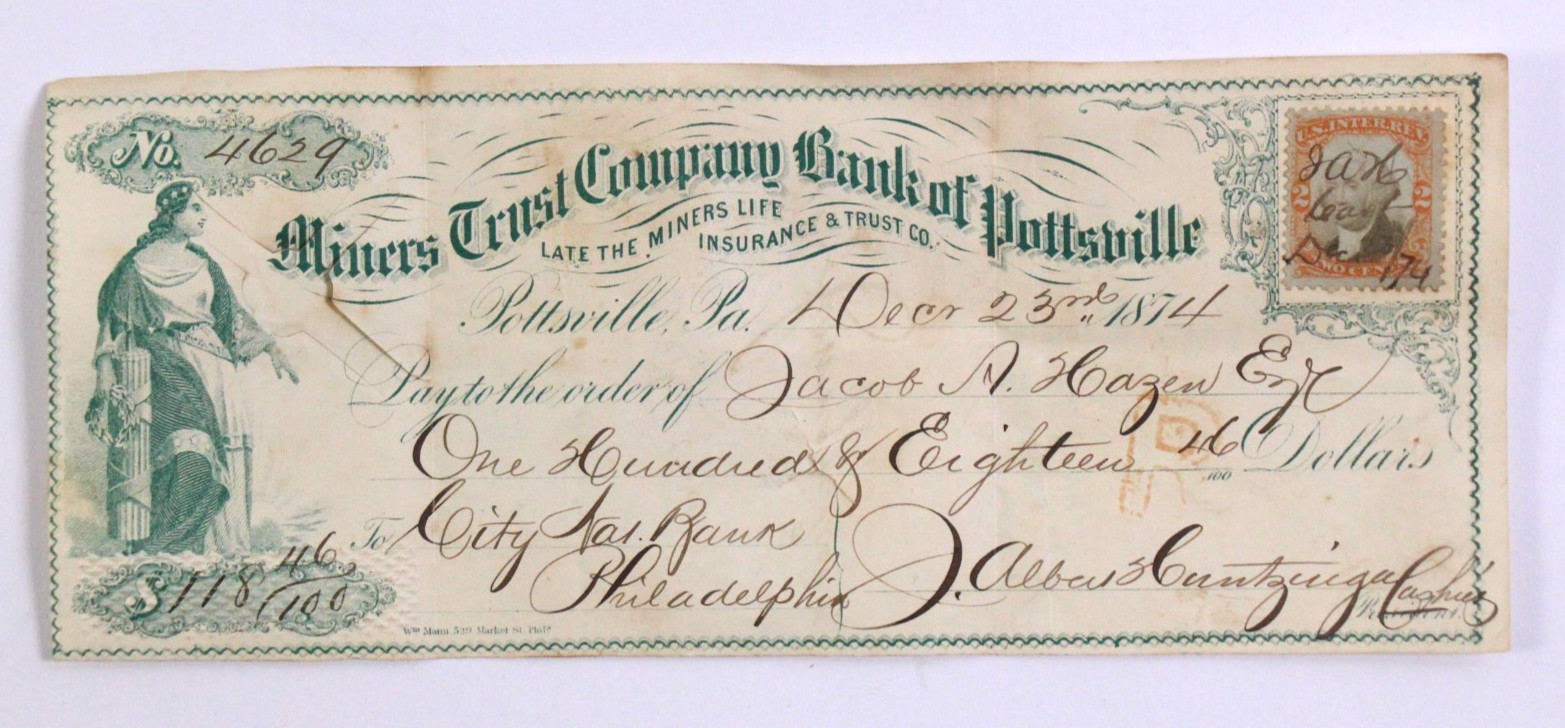 No. 4629
Miners Trust Company Bank of Pottsville
LATE THE MINERS LIFE INSURANCE & TRUST CO.
U.S. INTER. REV.
2 2
JAH
Cash
Dec 174
TWO CENTS
Pottsville, Pa. Decr 23rd 1874
Pay to the order of Jacob A. Hazen Esqr
One Hundred & Eighteen 46/100 Dollars
To City Nat. Bank
Philadelphia
$ 118 46/100
J. Albert Huntzinger Cashier
Wm Mann 529 Market St. Phila